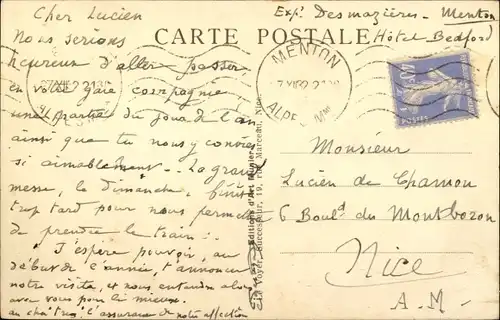 Cher Lucien
Nous serions
heureux d'aller passer,
en votre gaie compagnie,
une partie du jour de l'an
ainsi que tu nous y convies
si aimablement. La grand
messe, le dimanche, finit
trop tard pour nous permettre
de prendre le train.
J'espère pouvoir, au
début de l'année, t'annoncer
notre visite, et nous entendre alors
avec vous pour le mieux.
l'assurance de notre affection
Exp: Desmazières - Menton
Hôtel Bedford
CARTE POSTALE
MENTON
ALPES Mmes
POSTES
Editions d'Art Munier
Successeur, 19, rue Marceau, Nice
Monsieur
Lucien de Chamon
6 Bould du Montboron
Nice
A-M-